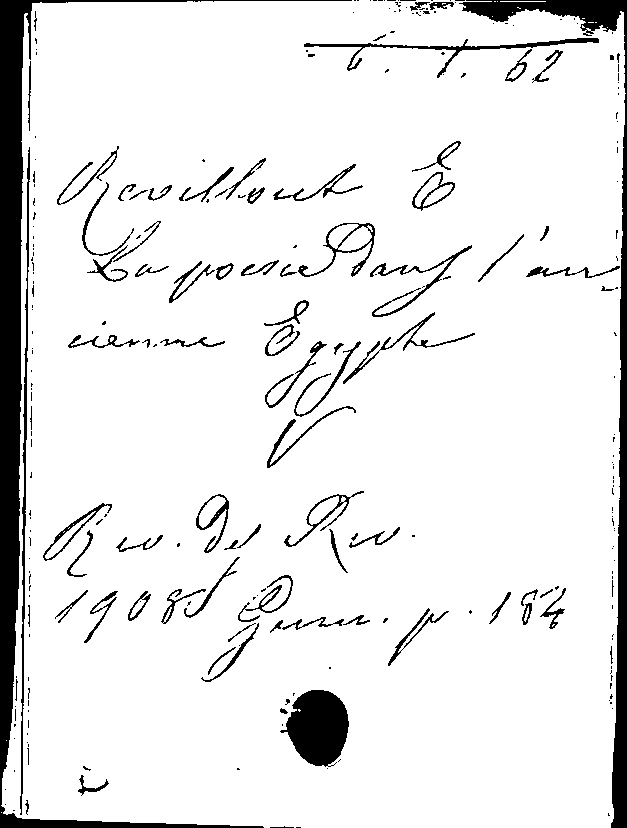 6. 1. 62
Revillout E
La poesie dans l'an-
cienne Egypte
V
Rev. des Rev.
1908 p. 184